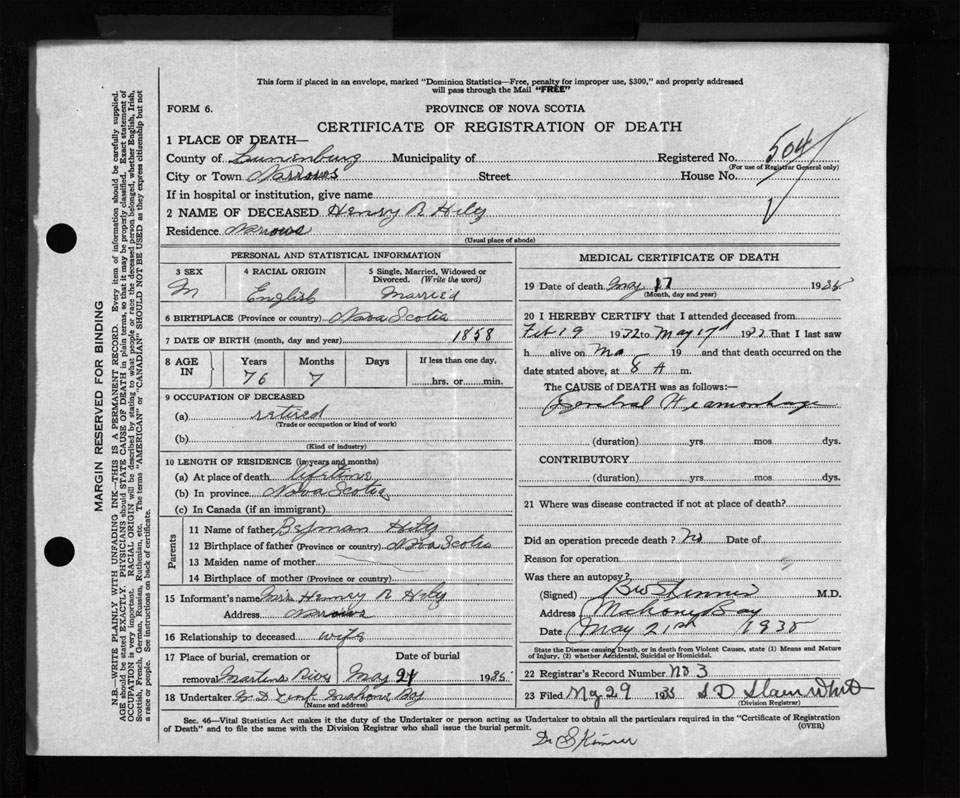 This form if placed in an envelope, marked "Dominion Statistics—Free, penalty for improper use, $300," and properly addressed
will pass through the Mail "FREE"
FORM 6.
PROVINCE OF NOVA SCOTIA
CERTIFICATE OF REGISTRATION OF DEATH
1 PLACE OF DEATH—
County of Lunenburg Municipality of Registered No. 504
(For use of Registrar General only)
City or Town Narrows Street House No.
If in hospital or institution, give name
2 NAME OF DECEASED Henry R Hily
Residence Narrows
(Usual place of abode)
PERSONAL AND STATISTICAL INFORMATION
3 SEX 4 RACIAL ORIGIN 5 Single, Married, Widowed or Divorced. (Write the word)
M English Married
6 BIRTHPLACE (Province or country) Nova Scotia
7 DATE OF BIRTH (month, day and year) 1858
8 AGE IN Years Months Days If less than one day,
76 7 hrs. or min.
9 OCCUPATION OF DECEASED
(a) retired
(Trade or occupation or kind of work)
(b)
(Kind of industry)
10 LENGTH OF RESIDENCE (in years and months)
(a) At place of death lifetime
(b) In province Nova Scotia
(c) In Canada (if an immigrant)
Parents
11 Name of father Hily
12 Birthplace of father (Province or country) Nova Scotia
13 Maiden name of mother
14 Birthplace of mother (Province or country)
15 Informant's name Mrs Henry R Hily
Address Narrows
16 Relationship to deceased wife
17 Place of burial, cremation or Date of burial
removal Martins River May 21 1935
18 Undertaker Mahone Bay
(Name and address)
MEDICAL CERTIFICATE OF DEATH
19 Date of death May 17 1935
(Month, day and year)
20 I HEREBY CERTIFY that I attended deceased from
Feb 19 1932 to May 17th 19 that I last saw
h alive on Ma 19 and that death occurred on the
date stated above, at 8 A m.
The CAUSE OF DEATH was as follows:—
Cerebral Heamorhage
(duration) yrs mos dys.
CONTRIBUTORY
(duration) yrs mos dys.
21 Where was disease contracted if not at place of death?
Did an operation precede death? No Date of
Reason for operation
Was there an autopsy?
(Signed) Skinner M.D.
Address Mahone Bay
Date May 21st 1935
State the Disease causing Death, or in death from Violent Causes, state (1) Means and Nature
of Injury, (2) whether Accidental, Suicidal or Homicidal.
22 Registrar's Record Number No 3
23 Filed May 29 1935 S D
(Division Registrar)
Sec. 46—Vital Statistics Act makes it the duty of the Undertaker or person acting as Undertaker to obtain all the particulars required in the "Certificate of Registration
of Death" and to file the same with the Division Registrar who shall issue the burial permit.
(OVER)
Dr Skinner
MARGIN RESERVED FOR BINDING
N.B.—WRITE PLAINLY WITH UNFADING INK—THIS IS A PERMANENT RECORD. Every item of information should be carefully supplied.
AGE should be stated EXACTLY. PHYSICIANS should STATE CAUSE OF DEATH in plain terms, so that it may be properly classified. Exact statement of
OCCUPATION is very important. RACIAL ORIGIN will be described by stating to what people or race the deceased person belonged, whether English, Irish,
Scottish, French, German, Russian, Ruthenian, etc. The terms "AMERICAN" or "CANADIAN" SHOULD NOT BE USED as they express citizenship but not
a race or people. See instructions on back of certificate.